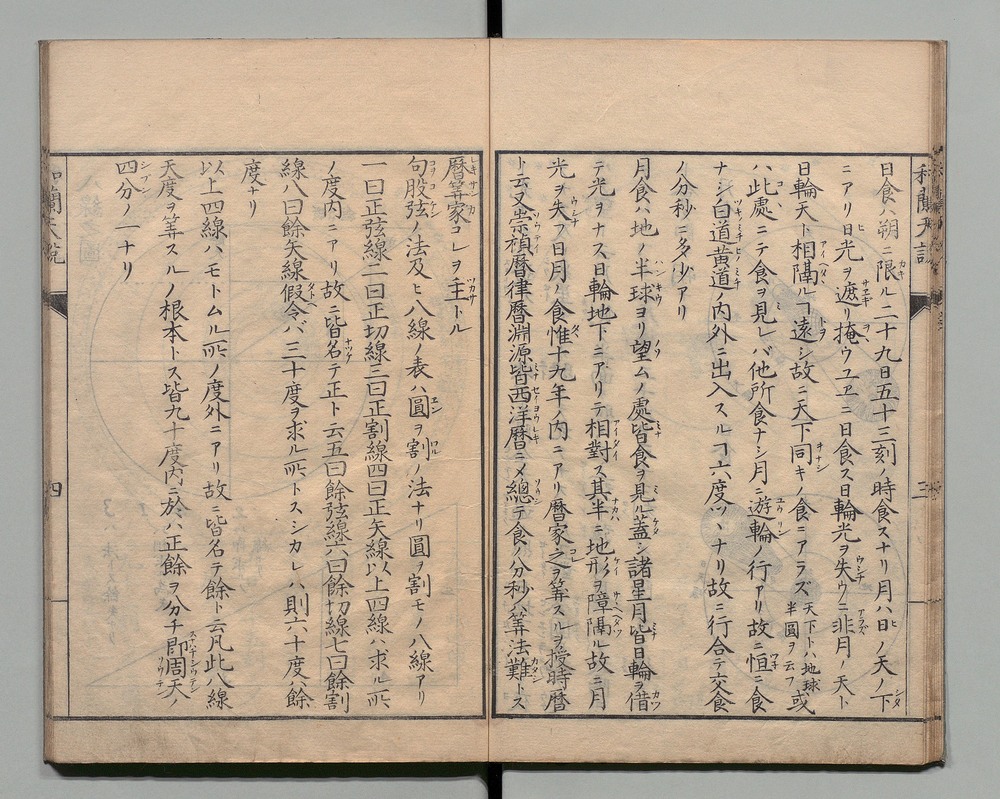 日食ハ朔ニ限ル二十九日五十三刻ノ時食スナリ月ハ日ノ天ノ下
ニアリ日光ヲ遮リ掩ウユヱニ日食ス日輪光ヲ失ウニ非月ノ天ト
日輪天ト相隔ルヿ遠シ故ニ天下同キノ食ニアラズ天下トハ地球半圓ヲ云フ或
ハ此處ニテ食ヲ見レバ他所食ナシ月ニ遊輪ノ行アリ故ニ恒ニ食
ナシ白道黄道ノ内外ニ出入スルヿ六度ツヽナリ故ニ行合テ交食
ノ分秒ニ多少アリ
月食ハ地ノ半球ヨリ望ムノ處皆食ヲ見ル蓋シ諸星月皆日輪ヲ借
テ光ヲナス日輪地下ニアリテ相對ス其半ニ地形ヲ障隔ル故ニ月
光ヲ失フ日月ノ食惟十九年ノ内ニアリ暦家之ヲ筭スルヲ授時暦
ト云又崇禎暦律暦淵源皆西洋暦ニメ總テ食ノ分秒ハ筭法難トス
暦筭家コレヲ主トル
句股弦ノ法及ヒ八線ノ表ハ圓ヲ割ノ法ナリ圓ヲ割モノ八線アリ
一曰正弦線二曰正切線三曰正割線四曰正矢線以上四線ハ求ル所
ノ度内ニアリ故ニ皆名テ正ト云五曰餘弦線六曰餘切線七曰餘割
線八曰餘矢線假令バ三十度ヲ求ル所トスシカレハ則六十度ハ餘
度ナリ
以上四線ハモトムル所ノ度外ニアリ故ニ皆名テ餘ト云凡此八線
天度ヲ筭スルノ根本トス皆九十度内ニ於ハ正餘ヲ分チ即周天ノ
四分ノ一ナリ
和蘭天説
三
四